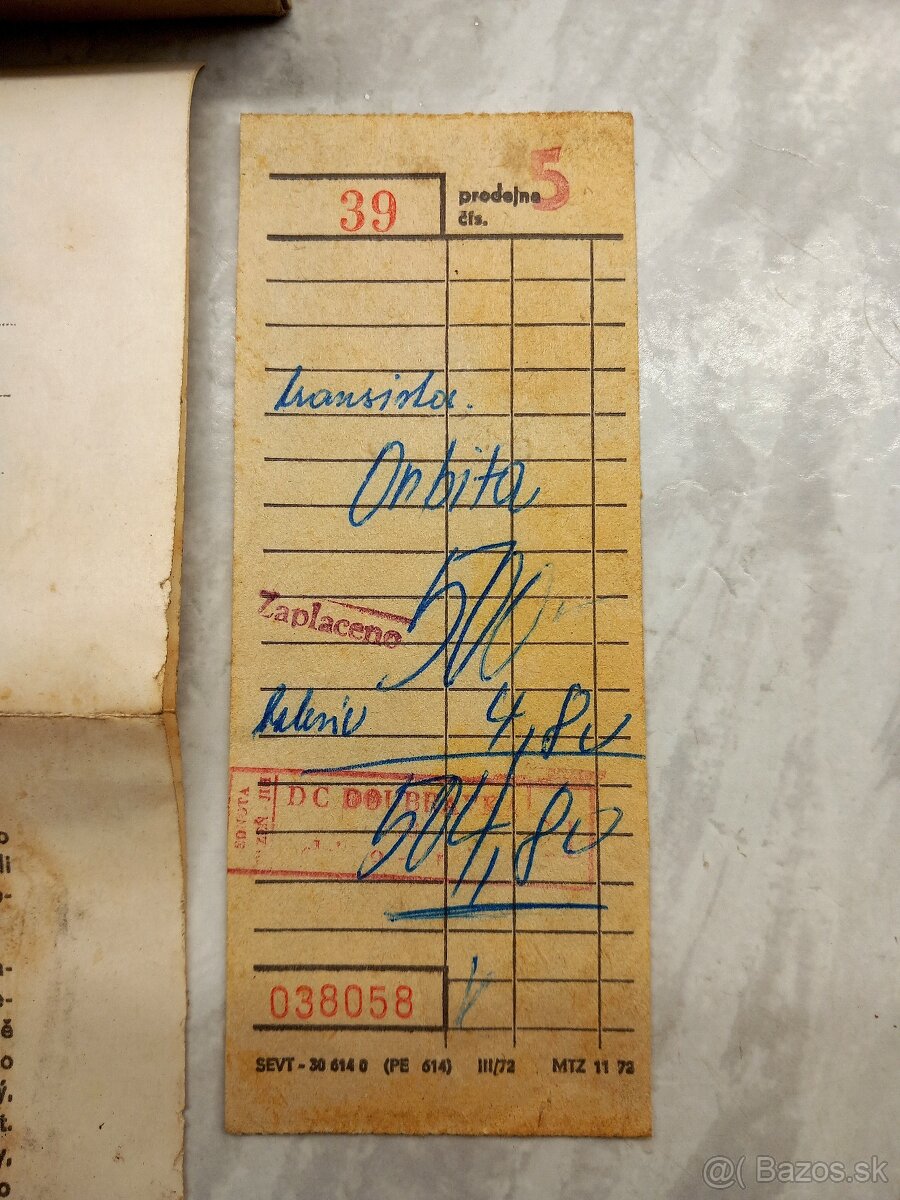 39
prodejna
čís.
5
transisto.
Orbita
500
Zaplaceno
baterie 4,80
DC DOUBRAVK
504,80
038058
SEVT - 30 614 0 (PE 614) III/72 MTZ 11 72
li
ě
o
ý,
t.
y,
o
@( Bazos.sk